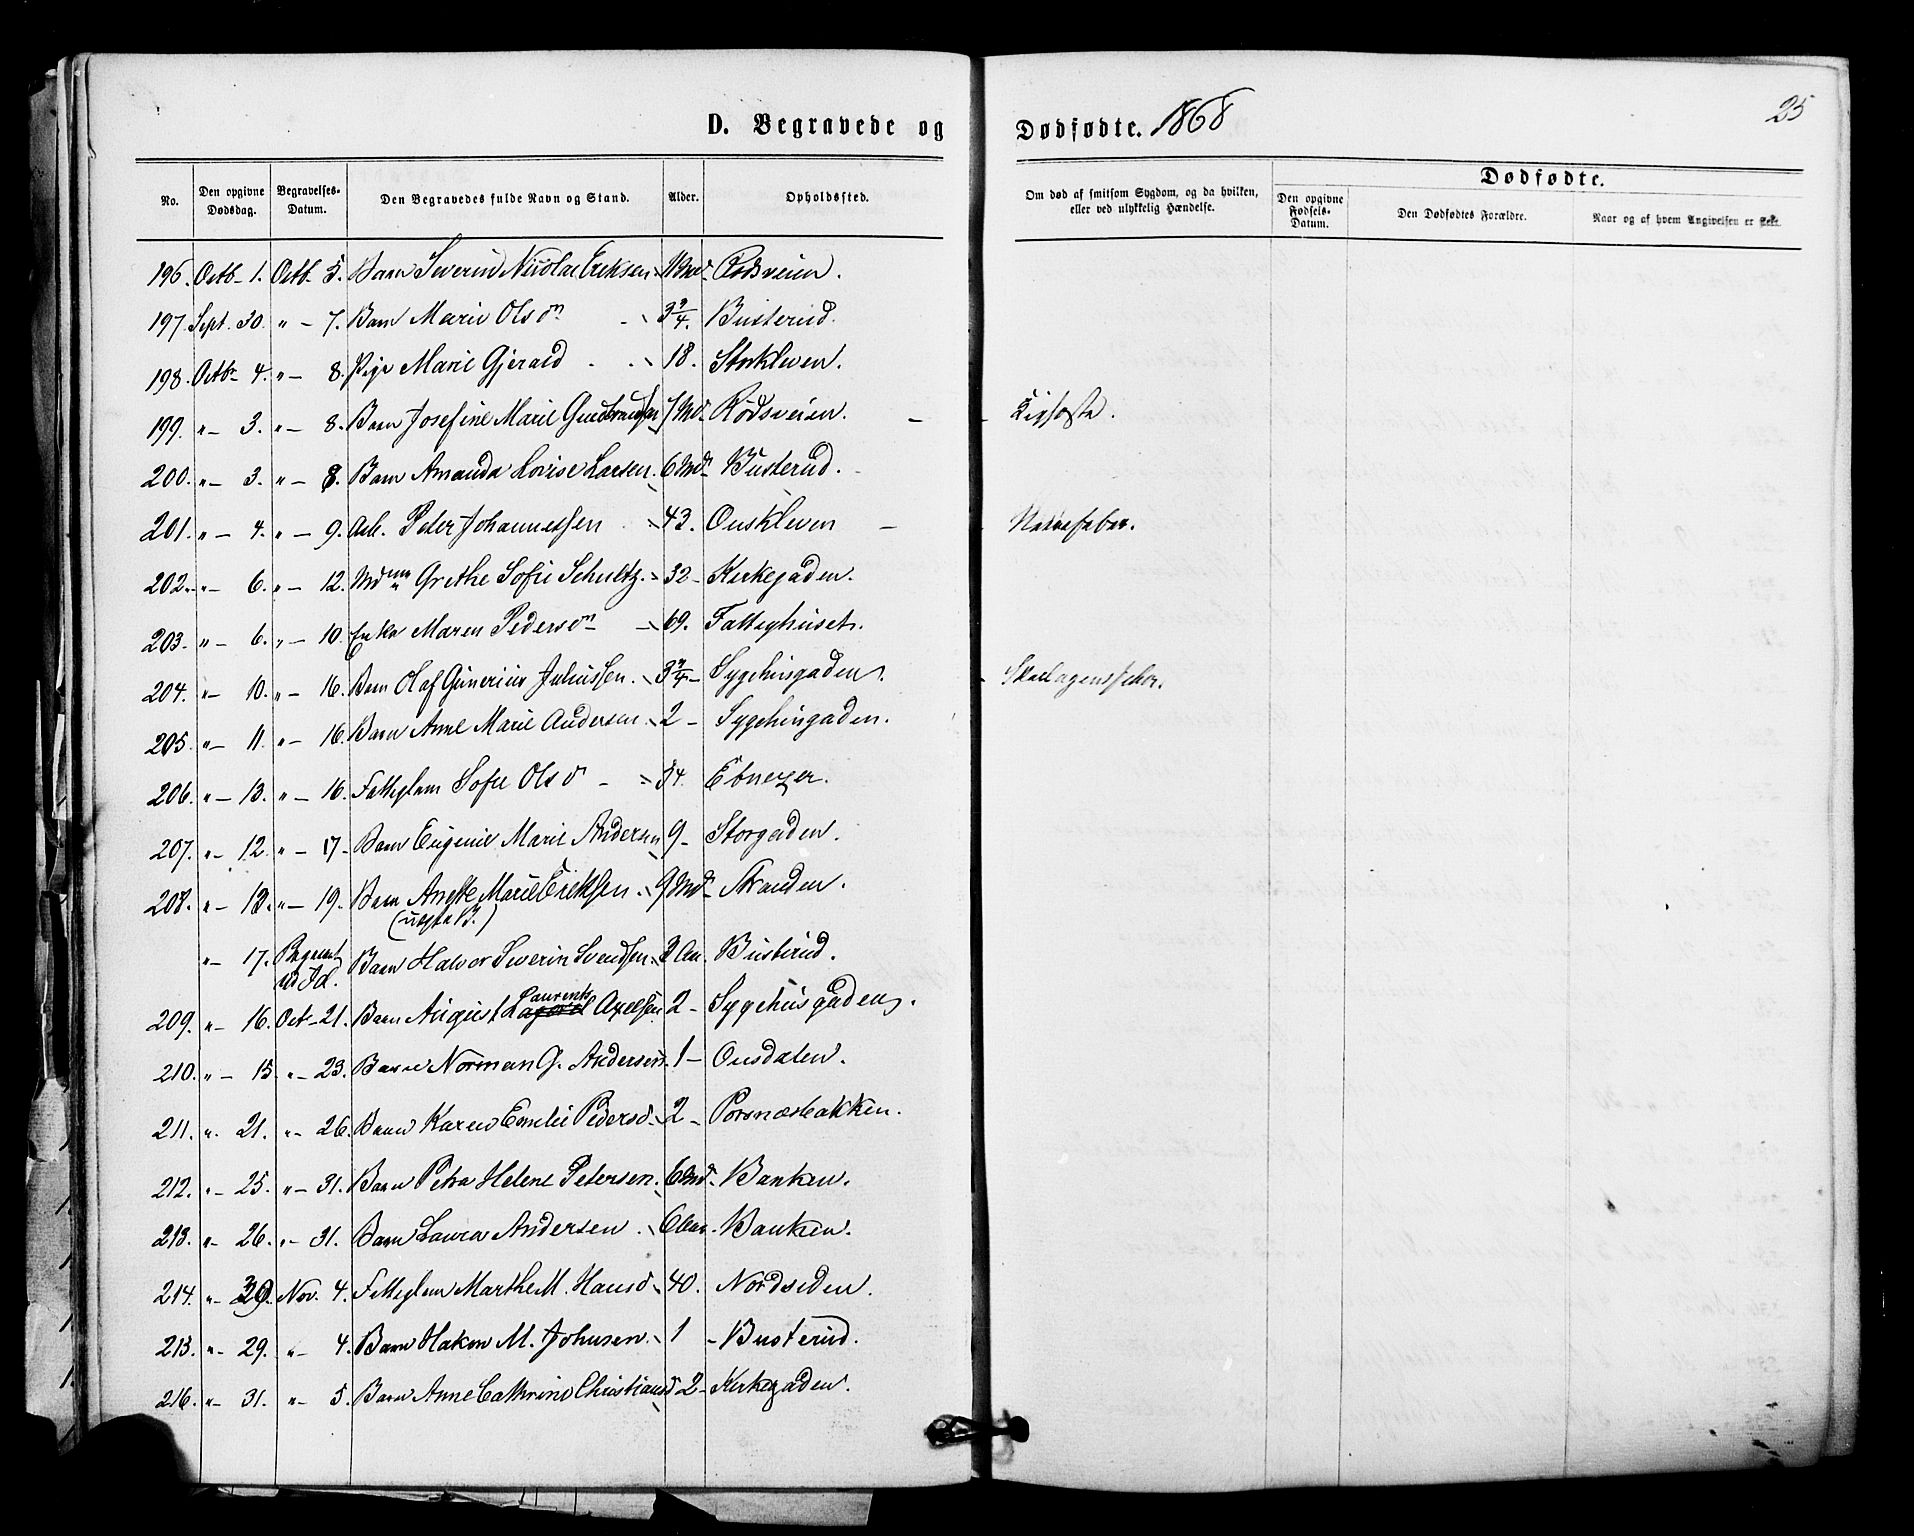 D. Begravede og Dødfødte. 1868
25
No. | Den opgivne Dødsdag. | Begravelses-Datum. | Den Begravedes fulde Navn og Stand. | Alder. | Opholdssted. | Om død af smitsom Sygdom, og da hvilken, eller ved ulykkelig Hændelse. | Dødfødte. | Den opgivne Fødsels-Datum. | Den Dødfødtes Forældre. | Naar og af hvem Angivelsen er skeet.
196. Octb - 1. Octb. 5. Barn Severin Nicolai Eriksen 11 Md. Rødsveien.
197. Sept. 30. " - 7. Barn Marie Olsdn 3 3/4. Busterud.
198. Octb - 4. " - 8. Pige Marie Gjerald 18. Storkleven.
199. " - 3. " - 8. Barn Josefine Marie Gudbrandsen 7 Md. Rødsveien.
200. " - 3. " - 8. Barn Amanda Lovise Larsen. 6 Md. Busterud.
201. " - 4. " - 9. Arb. Peter Johannessen 43. Ouskleven - Nervefeber.
202. " - 6. " - 12. Mdme Grethe Sofie Schultz. 32 - Kirkegaden.
203. " - 6. " - 10. Enke Maren Pedersdn - 69. Fattighuset.
204. " - 10. " - 16. Barn Olaf Gunerius Juliussen. 3 3/4 - Sygehusgaden. - Skarlagensfeber.
205. " - 11. " - 16. Barn Anne Marie Andersen. 2 - Sygehusgaden.
206. " - 13. " - 16. Fattiglem Sofie Olsd - 34. Ebnezer.
207. " - 12. " - 17 - Barn Eugenie Marie Andersen 9 - Storgaden.
208. " - 13. " - 19. Barn Anette Marie Eriksen. 9 Md. Stranden.
(uægte B.)
" - 17. Begravet
ved Id. Barn Halvor Severin Svendsen. 3 Aar Busterud.
Laurents
209. " - 16. Oct - 21. Barn August Axelsen 2 - Sygehusgaden.
210. " - 15. " - 23. Barn Norman G. Andersen. 1 - Ousdalen.
211. " 21. " - 26. Barn Karen Emilie Pedersd. 2 - Porsnæsbakken.
212. " - 25. " - 31. Barn Petra Helene Petersen. 6 Md. Banken.
213. " - 26. " - 31. Barn Laura Andersen. 6 Aar. Banken.
214. " - 30. Nov. 4. Fattiglem Marthe M. Hansd 40. Nordsiden.
213. " - 29. " - 4. Barn Hakon M. Johnsen. 1 - Busterud.
216. " - 31. " - 5. Barn Anne Cathrine Christiansd 2 - Kirkegaden.